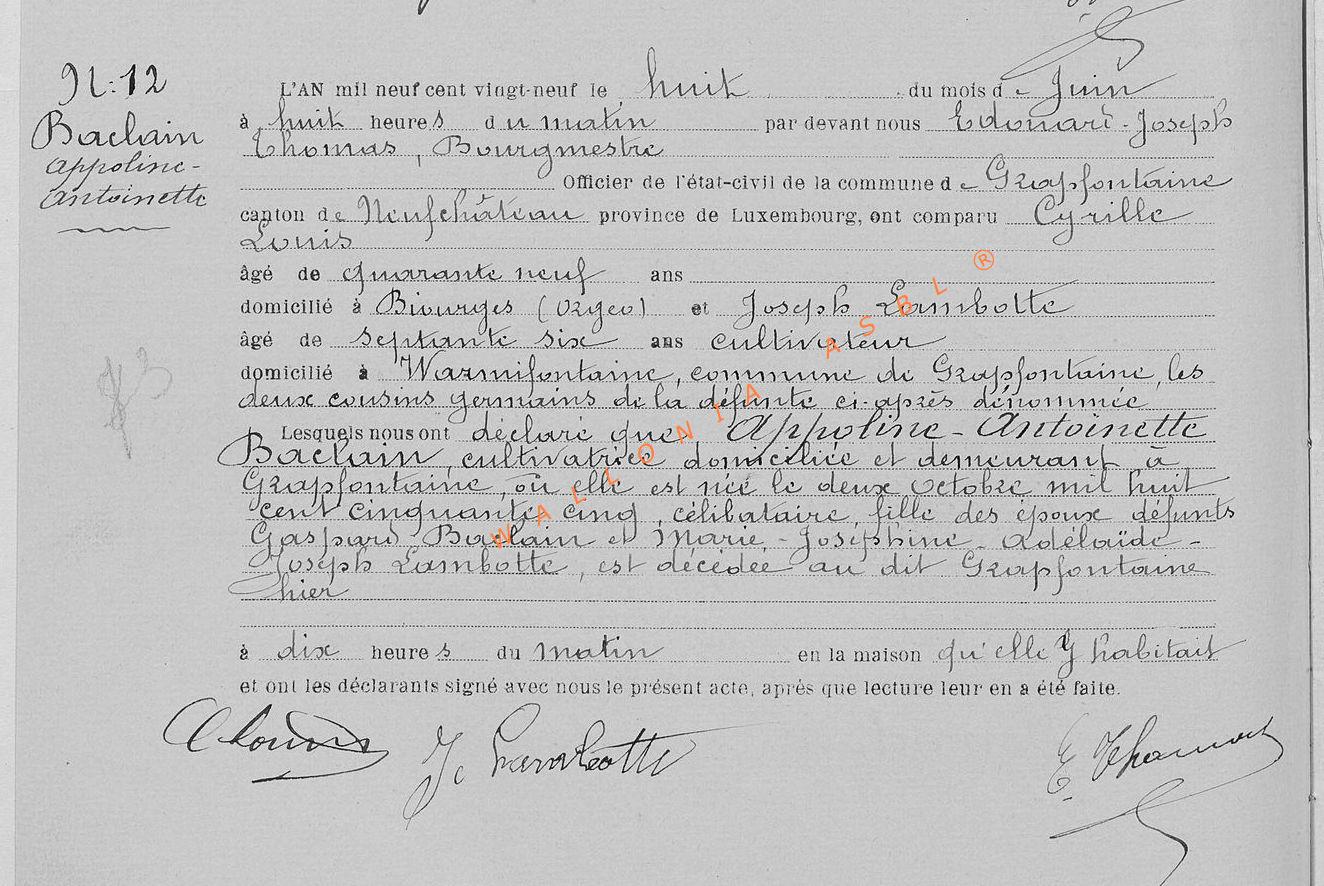 N: 12
Baclain
Appoline-
Antoinette
L'AN mil neuf cent vingt-neuf le huit du mois de Juin
à huit heures du matin par devant nous Edouard-Joseph
Thomas, Bourgmestre
Officier de l'état-civil de la commune de Grapfontaine
canton de Neufchâteau province de Luxembourg, ont comparu Cyrille
Louis
âgé de quarante neuf ans
domicilié à Biourges (Orgeo) et Joseph Lambotte
âgé de septante six ans cultivateur
domicilié à Warmifontaine, commune de Grapfontaine, les
deux cousins germains de la défunte ci-après dénommée
Lesquels nous ont déclaré que Appoline-Antoinette
Baclain, cultivatrice domiciliée et demeurant à
Grapfontaine, où elle est née le deux octobre mil huit
cent cinquante cinq, célibataire, fille des époux défunts
Gaspard Baclain et Marie-Joséphine-Adélaïde-
Joseph Lambotte, est décédée au dit Grapfontaine
hier
à dix heures du matin en la maison qu'elle y habitait
et ont les déclarants signé avec nous le présent acte, après que lecture leur en a été faite.
C Louis J. Lambotte E. Thomas
WALLONIA ASBL ®